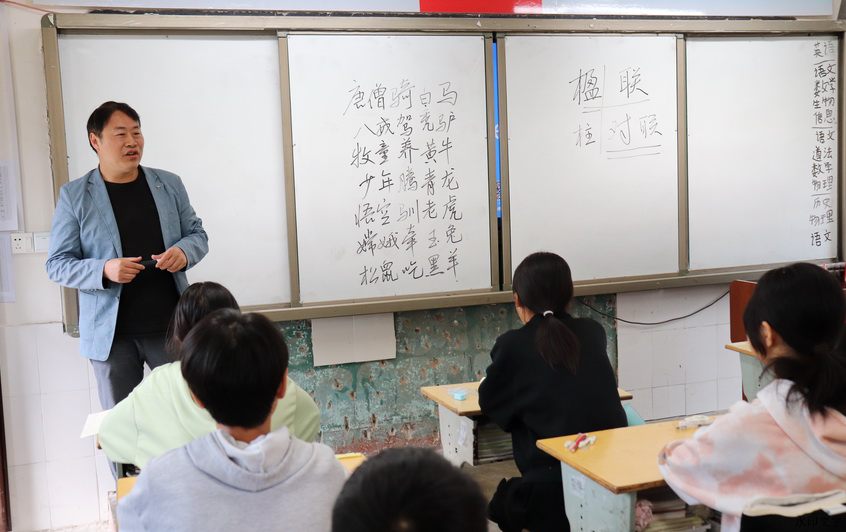 唐僧骑白马
八戒驾秃驴
牧童养黄牛
少年腾青龙
悟空驯老虎
嫦娥牵玉兔
松鼠吃黑羊
楹联
柱 对联
英语
语文
数学
生物
信息
语文
道法
数学
物理
历史
物理
语文